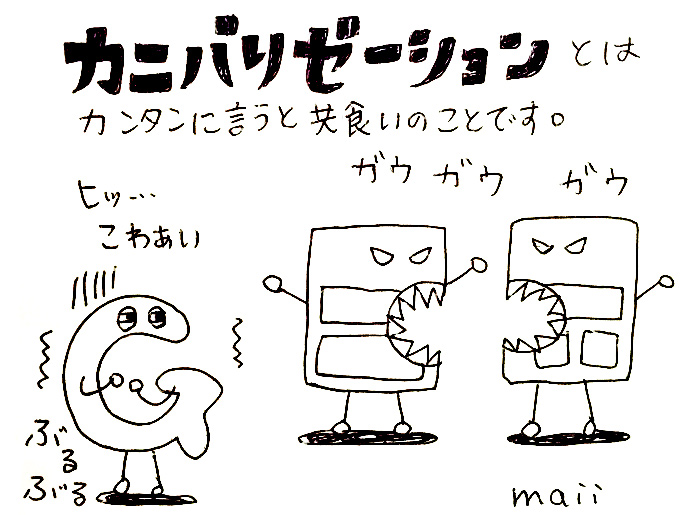 カニバリゼーションとは
カンタンに言うと共食いのことです。
ガウ ガウ ガウ
ヒッ…
こわぁい
ぶる
ぶる
maii